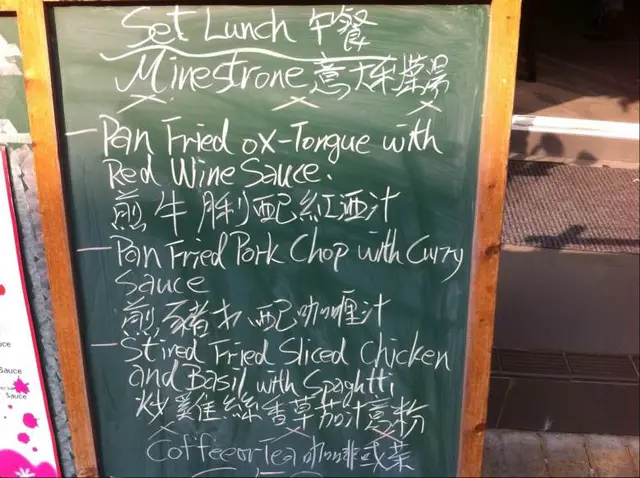 Set Lunch 午餐
Minestrone 意大利菜湯
Pan Fried ox-Tongue with
Red Wine Sauce.
煎牛脷配紅酒汁
Pan Fried Pork Chop with Curry
Sauce
煎豬扒配咖喱汁
Stired Fried Sliced Chicken
and Basil with Spaghtti
炒雞絲香草茄汁意粉
Coffee or Tea 咖啡或茶
Sauce